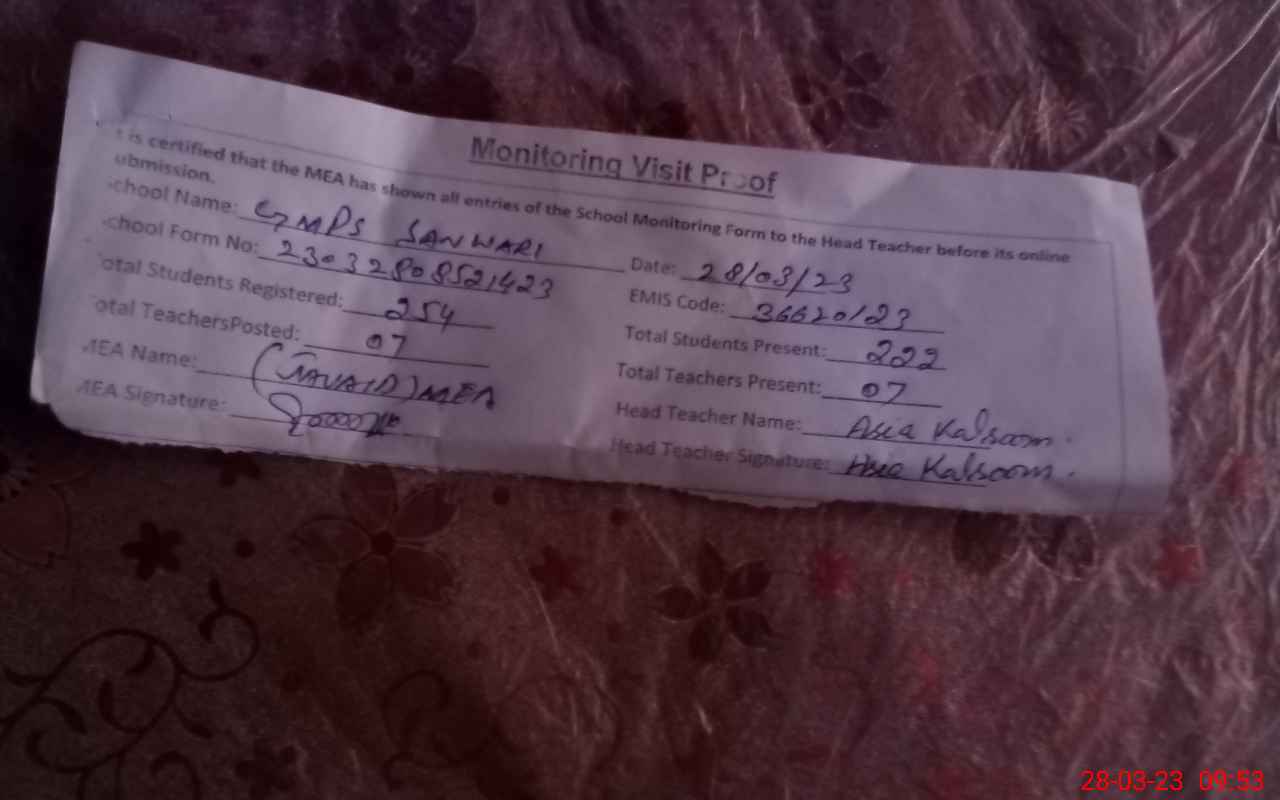 Monitoring Visit Proof
t is certified that the MEA has shown all entries of the School Monitoring Form to the Head Teacher before its online
ubmission.
chool Name: GMPS SANWARI Date: 28/03/23
chool Form No: 23032808521423 EMIS Code: 36620123
otal Students Registered: 254 Total Students Present: 222
otal TeachersPosted: 07 Total Teachers Present: 07
MEA Name: (JAVAID) MEA Head Teacher Name: Asia Kalsoom.
MEA Signature: Head Teacher Signature: Asia Kalsoom.
28-03-23 09:53